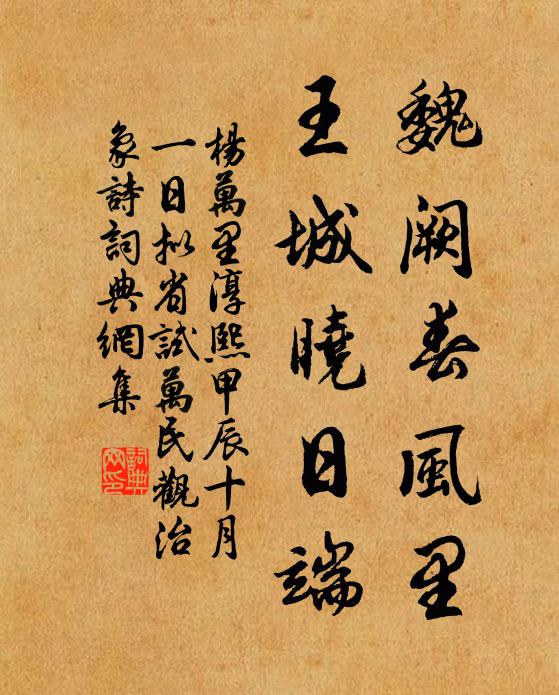 魏阙春風里
王城曉日端
楊萬里淳熙甲辰十月
一日拟省試萬民觀治
象詩詞典網集
詞典網印